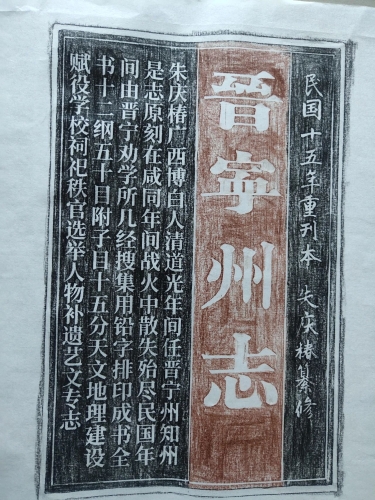 民国十五年重刊本 朱庆椿纂修
晋宁州志
朱庆椿广西博白人清道光年间任晋宁州知州
是志原刻在咸同年间战火中散失始尽民国年
间由晋宁劝学所几经搜集用铅字排印成书全
书十二纲五十目附子目十五分天文地理建设
赋役学校祠祀秩官选举人物补遗艺文专志